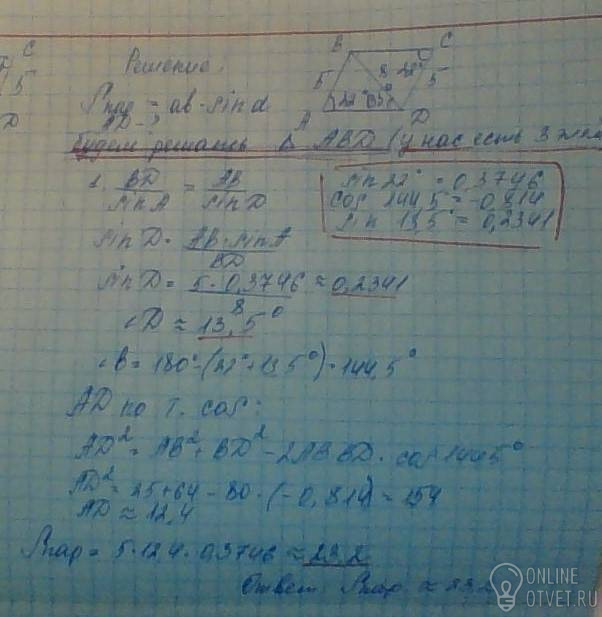 C
5
D
Решение.
B C
5 8 22° 5
22° 13,5°
A D
Sпар = ab·sin α
AD - ?
будем решать Δ ABD (у нас есть 3
sin 22° = 0,3746
cos 144,5° = -0,814
sin 13,5° = 0,2341
1. BD/sin A = AB/sin D
sin D = AB·sin A/BD
sin D = 5·0,3746/8 ≈ 0,2341
∠D ≈ 13,5°
∠B = 180° - (22° + 13,5°) = 144,5°
AD по т. cos:
AD² = AB² + BD² - 2AB BD · cos 144,5°
AD² = 25 + 64 - 80 · (-0,814) = 154
AD ≈ 12,4
Sпар = 5·12,4·0,3746 ≈ 23,2
Ответ Sпар ≈ 23,2
ONLINE
OTVET.RU